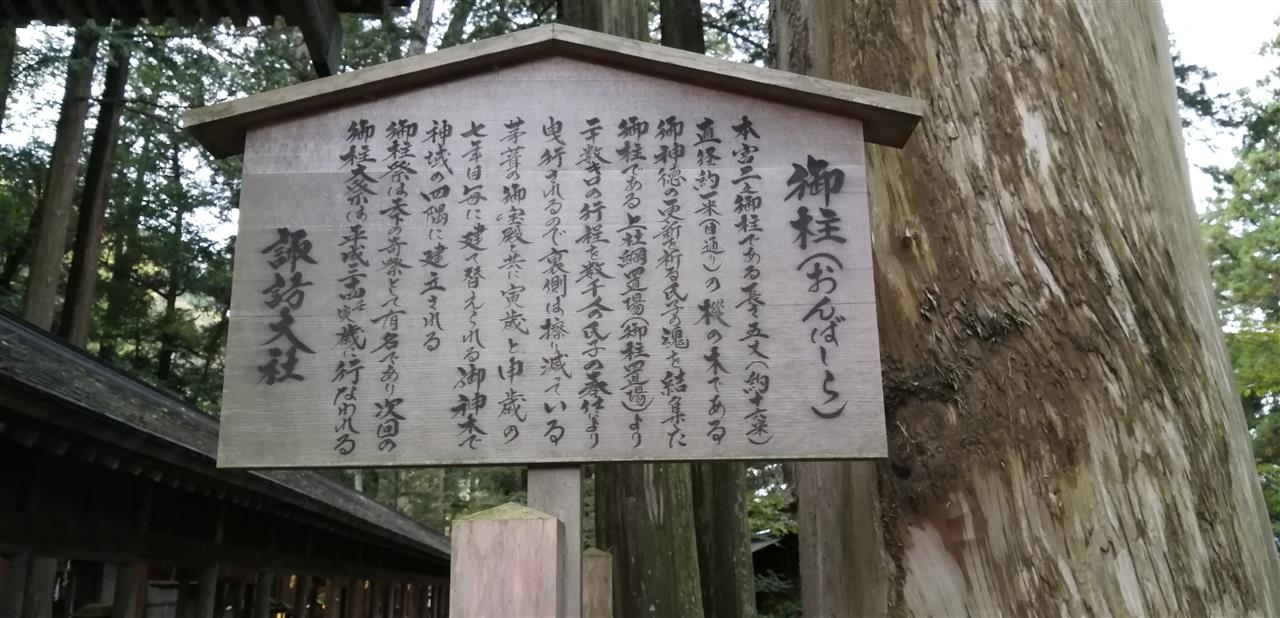 御柱(おんばしら)
本宮二之御柱である長さ五丈(約十六米)
直径約一米(目通り)の樅の木である
御神徳の更新を祈る氏子の魂を結集した
御柱である上社綱置場(御柱置場)より
二十数キロの行程を数千人の氏子の奉仕により
曳行されるので裏側は擦り減っている
茅葺の御宝殿と共に寅歳と申歳の
七年目毎に建て替えられる御神木で
神域の四隅に建立される
御柱祭は天下の奇祭として有名であり次回の
御柱大祭は平成三十四壬寅歳に行なわれる
諏訪大社